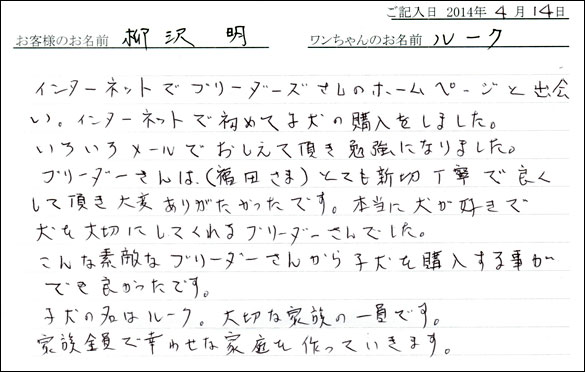 ご記入日 2014年 4月 14日
お客様のお名前 柳沢 明 ワンちゃんのお名前 ルーク
インターネットでブリーダーズさんのホームページと出会
い。インターネットで初めて子犬の購入をしました。
いろいろメールでおしえて頂き勉強になりました。
ブリーダーさんは、(福田さま)とても新切丁寧で良く
して頂き大変ありがたかったです。本当に犬が好きで
犬を大切にしてくれるブリーダーさんでした。
こんな素敵なブリーダーさんから子犬を購入する事が
でき良かったです。
子犬の名はルーク。大切な家族の一員です。
家族全員で幸わせな家庭を作っていきます。